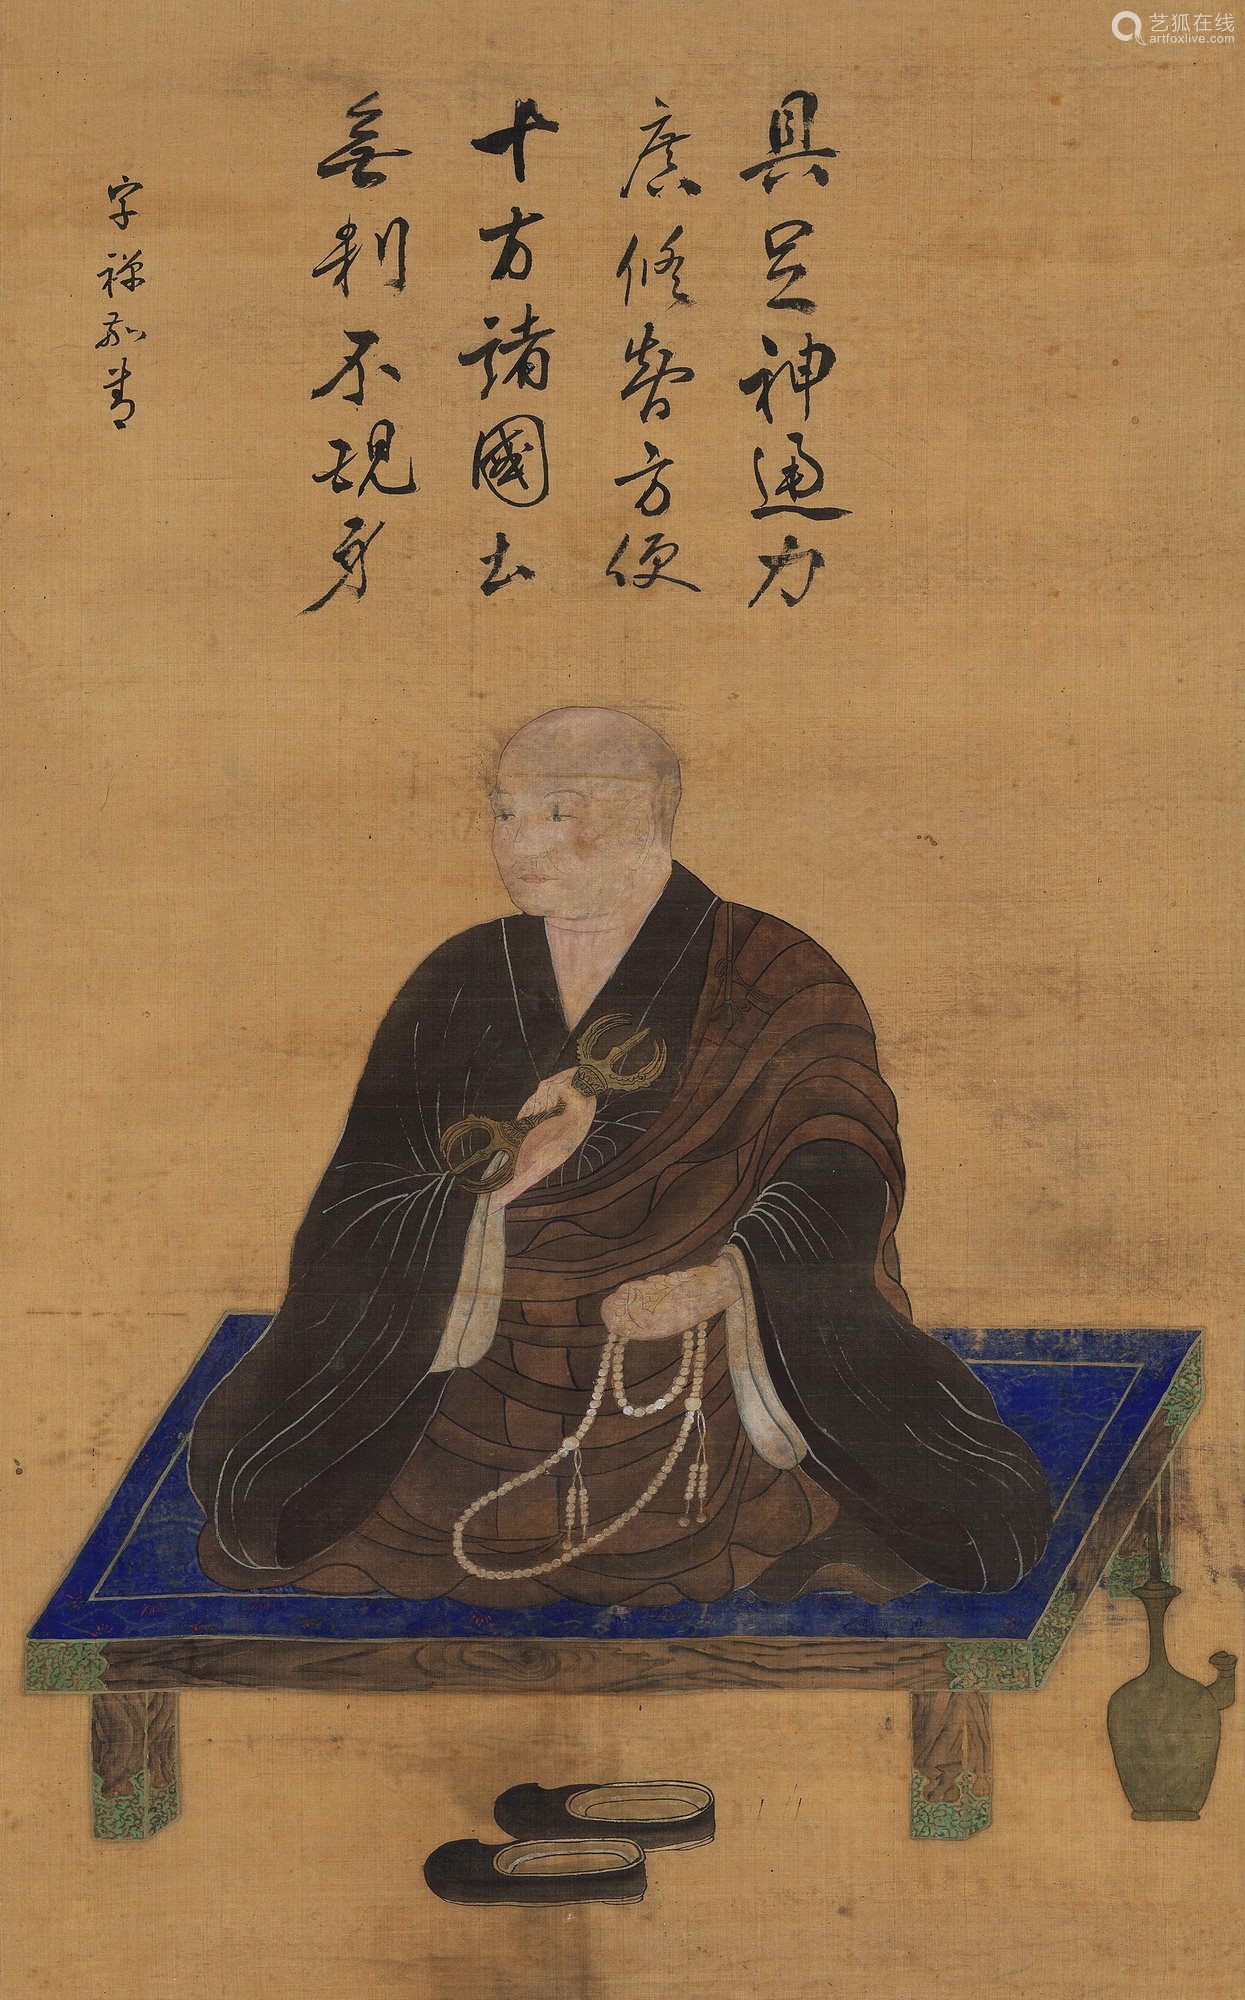 具足神通力
廣修智方便
十方諸國土
無刹不現身
艺狐在线
artfoxlive.com